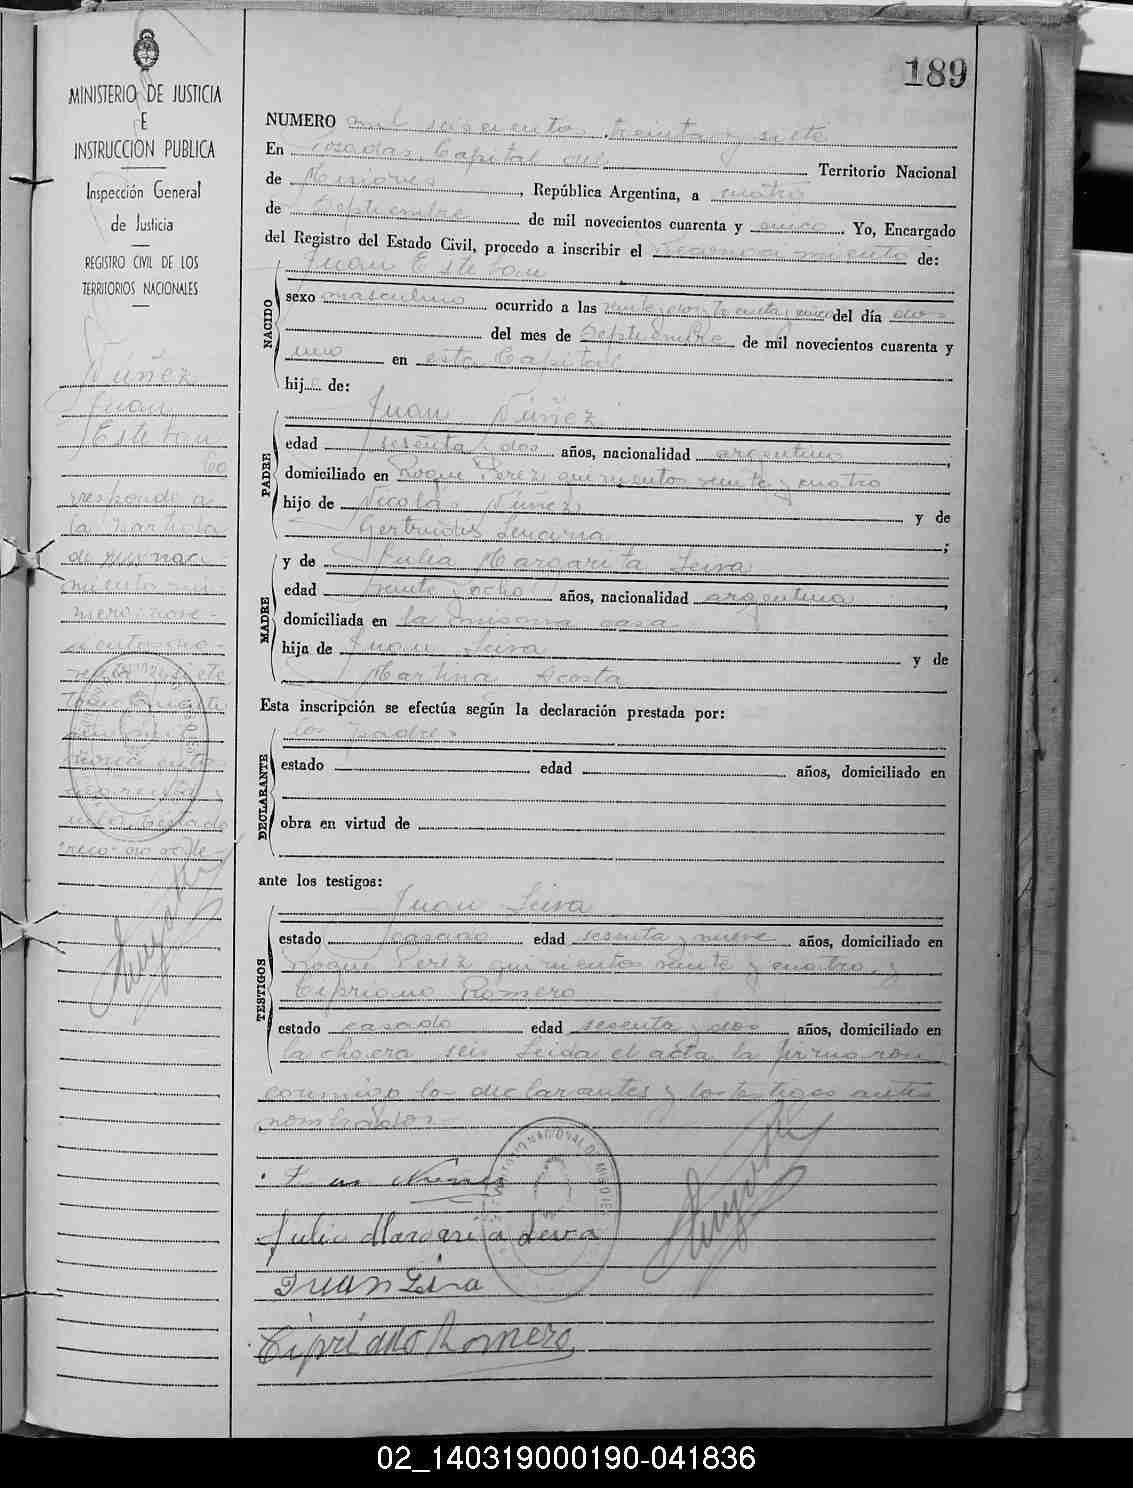 189
MINISTERIO DE JUSTICIA
E
INSTRUCCIÓN PUBLICA
Inspección General
de Justicia
REGISTRO CIVIL DE LOS
TERRITORIOS NACIONALES
Núñez
Juan
Esteban
Co
rresponde a
la partida
de su naci
miento nú
mero nove-
NUMERO mil seiscientos treinta y siete
En Posadas, Capital del Territorio Nacional
de Misiones, República Argentina, a cuatro
de Septiembre de mil novecientos cuarenta y cinco. Yo, Encargado
del Registro del Estado Civil, procedo a inscribir el Reconocimiento de:
Juan Esteban
NACIDO
sexo masculino ocurrido a las veinte, dos, treinta y cinco del día dos
del mes de Septiembre de mil novecientos cuarenta y
uno en esta Capital
hijo de:
PADRE
Juan Núñez
edad sesenta y dos años, nacionalidad argentino;
domiciliado en Roque Perez quinientos veinte y cuatro
hijo de Nicolás Núñez y de
Gertrudis ;
MADRE
y de Julia Margarita Leiva
edad veinte y ocho años, nacionalidad argentina,
domiciliada en la misma casa
hija de Juan Leiva y de
Martina Acosta
Esta inscripción se efectúa según la declaración prestada por:
DECLARANTE
los padres
estado edad años, domiciliado en
obra en virtud de
ante los testigos:
TESTIGOS
Juan Leiva
estado casado edad sesenta y nueve años, domiciliado en
Roque Perez quinientos veinte y cuatro, y
Cipriano Romero
estado casado edad sesenta y dos años, domiciliado en
la chacra seis Leida el acta la firmaron
conmigo los declarantes y los testigos antes
nombrados.
Juan Nuñez
Julia Margarita Leiva
Juan Leiva
Cipriano Romero
02_140319000190-041836